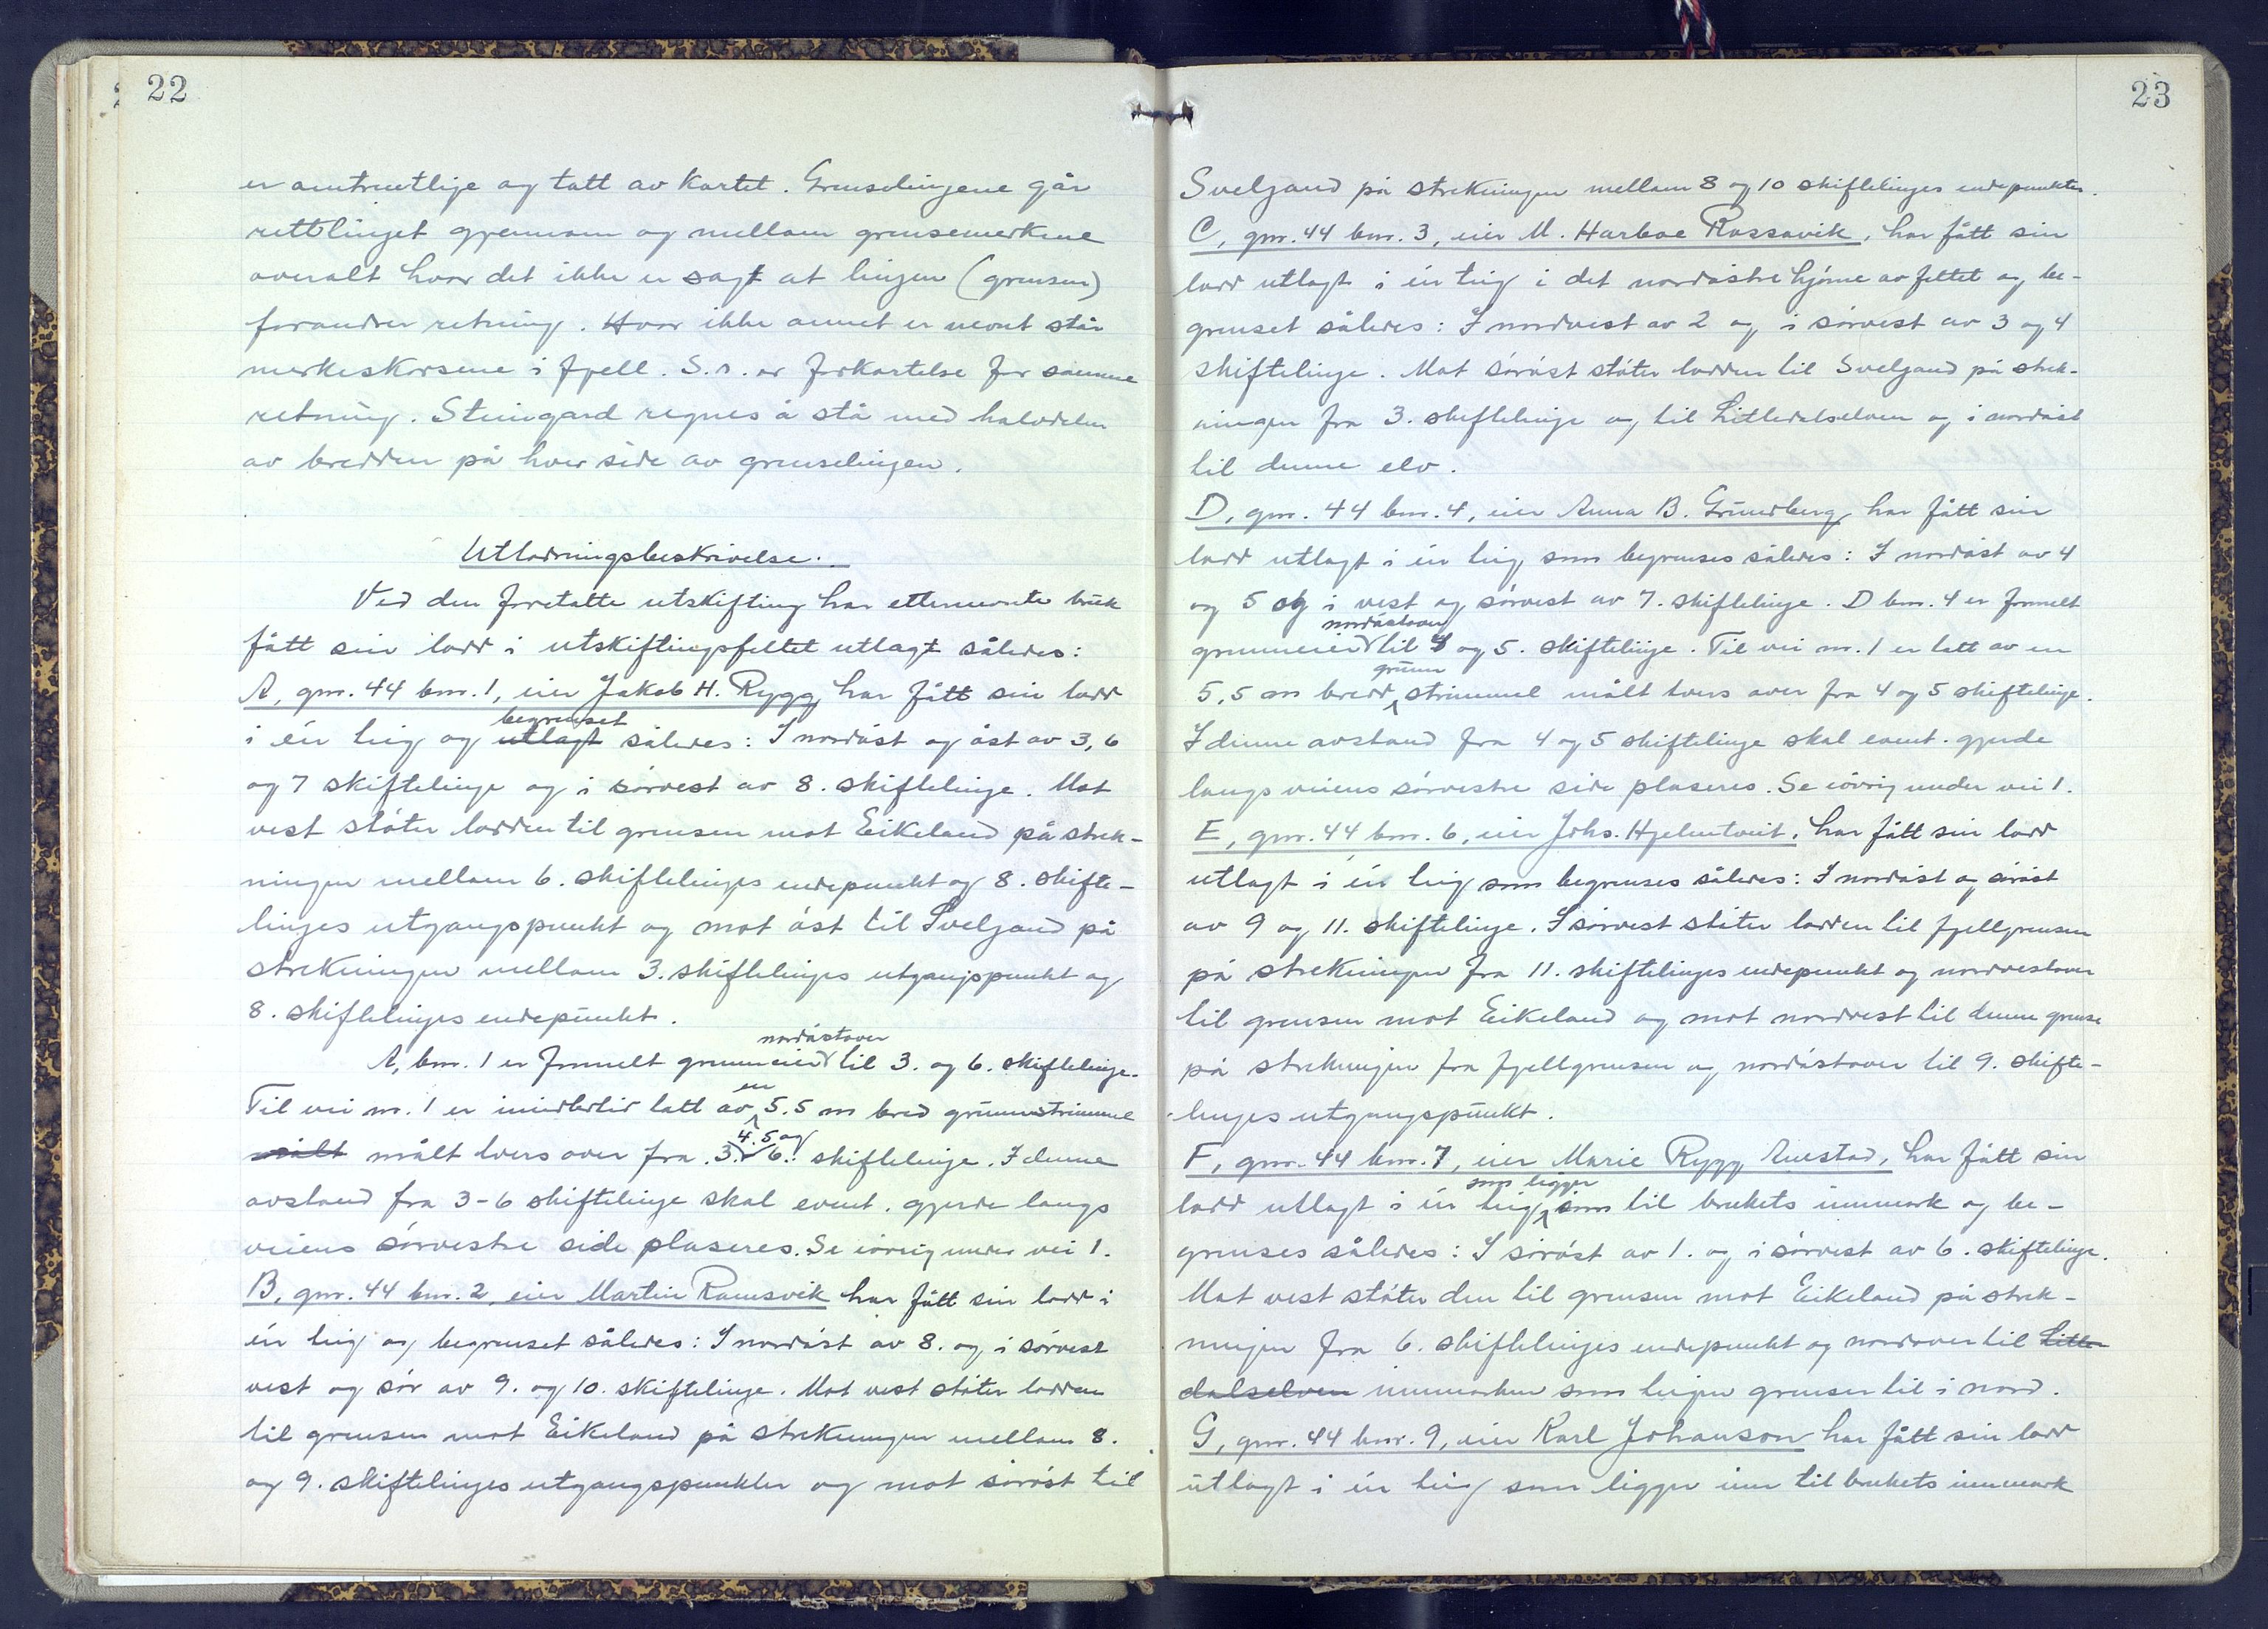 22
er omtrentlige og tatt av kartet. Grenselinjene går
rettlinjet gjennom og mellom grensemerkene
overalt hvor det ikke er sagt at linjen (grensen)
forandrer retning. Hvor ikke annet er nevnt står
merkeskorsene i fjell. S. r. er forkortelse for samme
retning. Steingard regnes å stå med halvdelen
av bredden på hver side av grenselinjen.
Utlodningsbeskrivelse.
Ved den foretatte utskifting har etternevnte bruk
fått sin lodd i utskiftingsfeltet utlagt således:
A, gnr. 44 bnr. 1, eier Jakob H. Rygg, har fått sin lodd
begrenset
i én teig og utlagt således: I nordøst og øst av 3, 6
og 7 skiftelinje og i sørvest av 8. skiftelinje. Mot
vest støter lodden til grensen mot Eikeland på strek-
ningen mellom 6. skiftelinjes endepunkt og 8. skifte-
linjes utgangspunkt og mot øst til Sveljand på
strekningen mellom 3. skiftelinjes utgangspunkt og
8. skiftelinjes endepunkt.
nordøstover
A, bnr. 1 er formelt grunneier til 3. og 6. skiftelinje.
en
Til vei nr. 1 er imidlertid tatt av 5.5 m bred grunnstrimmel
4. 5 og
målt målt tvers over fra 3. 6. skiftelinje. I denne
avstand fra 3-6 skiftelinje skal event. gjerde langs
veiens sørvestre side plaseres. Se iøvrig under vei 1.
B, gnr. 44 bnr. 2, eier Martin Ramsvik har fått sin lodd i
én teig og begrenset således: I nordøst av 8. og i sørvest
vest og sør av 9. og 10. skiftelinje. Mot vest støter lodden
til grensen mot Eikeland på strekningen mellom 8.
og 9. skiftelinjes utgangspunkter og mot sørøst til
23
Sveljand på strekningen mellom 8 og 10 skiftelinjes endepunkter.
C, gnr. 44 bnr. 3, eier M. Harboe Rossavik, har fått sin
lodd utlagt i én teig i det nordøstre hjørne av feltet og be-
grenset således: I nordvest av 2 og i sørvest av 3 og 4
skiftelinje. Mot sørøst støter lodden til Sveljand på strek-
ningen fra 3. skiftelinje og til Litledalselven og i nordøst
til denne elv.
D, gnr. 44 bnr. 4, eier Anna B. Grundberg, har fått sin
lodd utlagt i én teig som begrenses således: I nordøst av 4
og 5 og i vest og sørvest av 7. skiftelinje. D bnr. 4 er formelt
nordøstover
grunneier til 4 og 5. skiftelinje. Til vei nr. 1 er tatt av en
grunn
5,5 m bred strimmel målt tvers over fra 4 og 5 skiftelinje.
I denne avstand fra 4 og 5 skiftelinje skal event. gjerde
langs veiens sørvestre side plaseres. Se iøvrig under vei 1.
E, gnr. 44 bnr. 6, eier Johs. Hjelmtveit, har fått sin lodd
utlagt i én teig som begrenses således: I nordøst og sørøst
av 9 og 11. skiftelinje. I sørvest støter lodden til fjellgrensen
på strekningen fra 11. skiftelinjes endepunkt og nordvestover
til grensen mot Eikeland og mot nordvest til denne grense
på strekningen fra fjellgrensen og nordøstover til 9. skifte-
linjes utgangspunkt.
F, gnr. 44 bnr. 7, eier Marie Rygg, har fått sin
som ligger
lodd utlagt i én teig som til brukets innmark og be-
grenses således: I sørøst av 1. og i sørvest av 6. skiftelinje.
Mot vest støter den til grensen mot Eikeland på strek-
ningen fra 6. skiftelinjes endepunkt og nordover til Litle-
dalselven innmarken som teigen grenser til i nord.
G, gnr. 44 bnr. 9, eier Karl Johanson har fått sin lodd
utlagt i én teig som ligger inn til brukets innmark